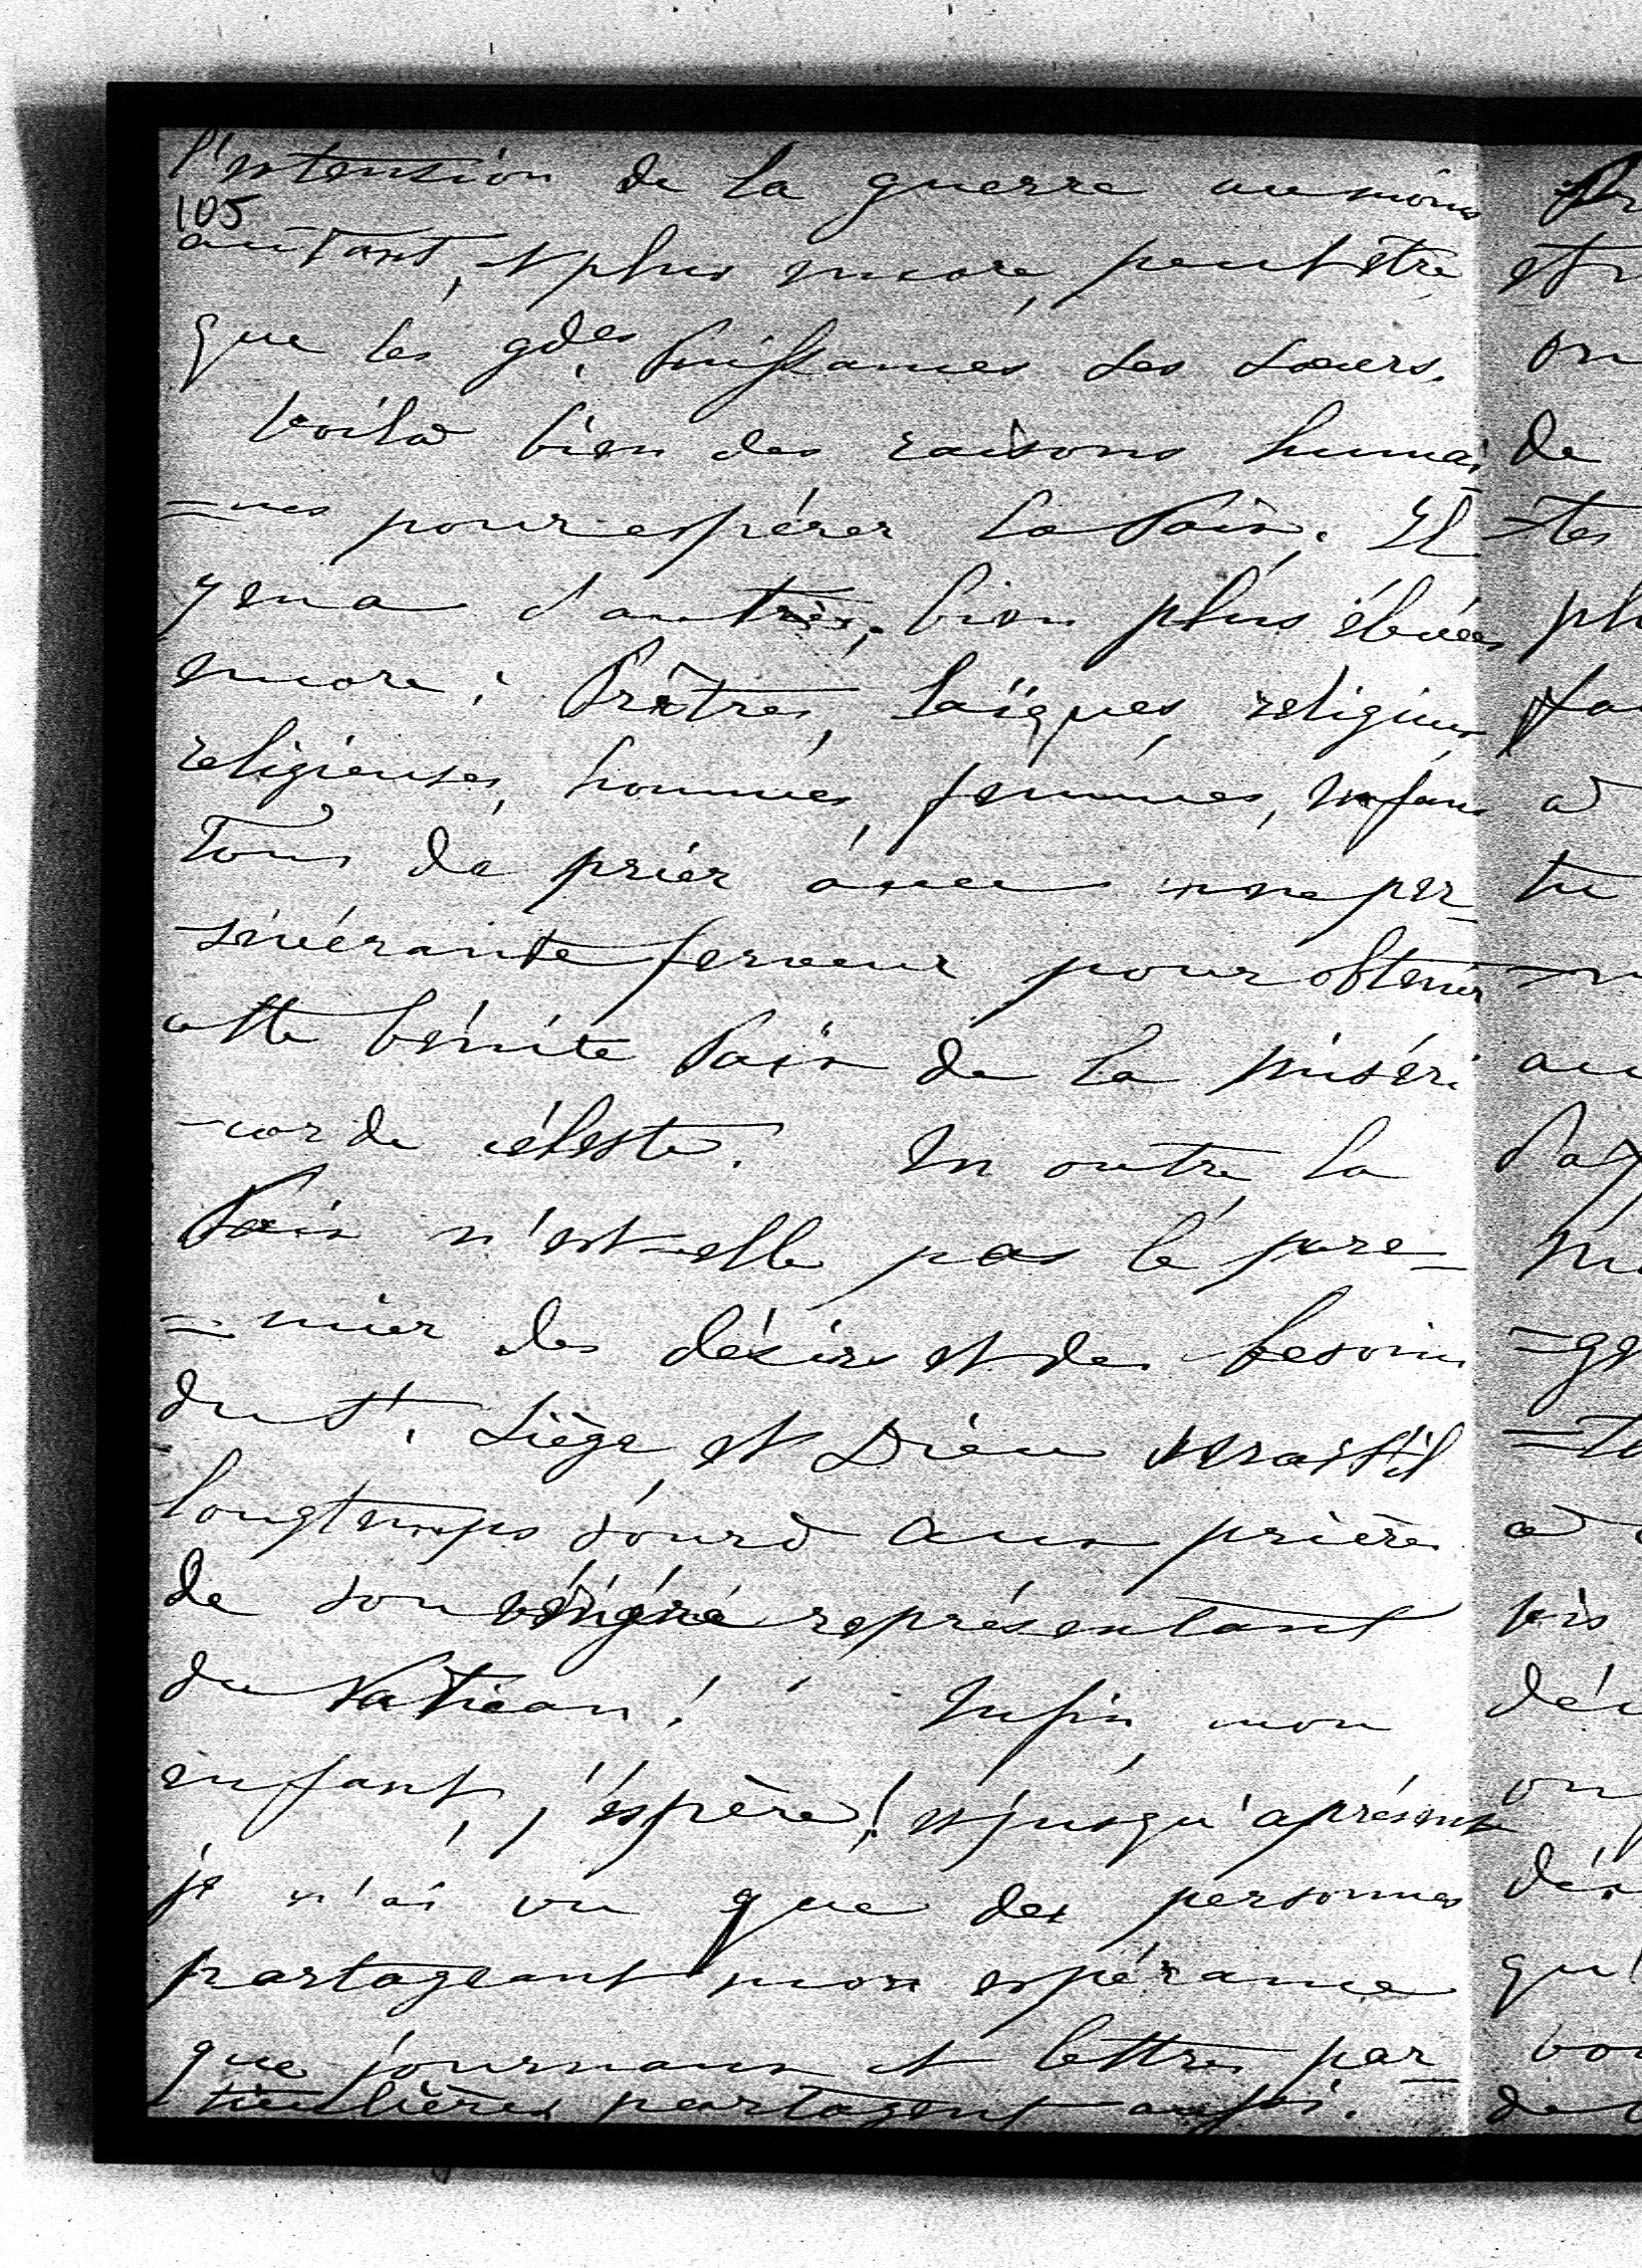 l'extension de la guerre au moins
105
autant, et plus encore, peut être
que les gdes. Puissances ses sœurs.
Voilà bien des raisons humai
=nes pour espérer la Paix. Il
y en a d'autres, bien plus élevées
encore : Prêtres, laïques, religieux
religieuses, hommes, femmes, enfans
tous de prier avec une per-
sévérante ferveur pour obtenir
cette bénite Paix de la miséri
-corde céleste. En outre, la
Paix n'est-elle pas le pre-
=mier des désirs et des besoins
du St. Siège, et Dieu serait-il
longtemps sourd aux prières
de son vénéré représentant
du Vatican ! Enfin, mon
enfant, j'espère ! et jusqu'à présent
je n'ai vu que des personnes
partageant mon espérance
que journaux et lettres par-
ticulières partagent aussi.
Pr
et
on
de
-tes
plu
fa
à
tu
au
Pa
=ge
à
vis
on
qu'
vou
de